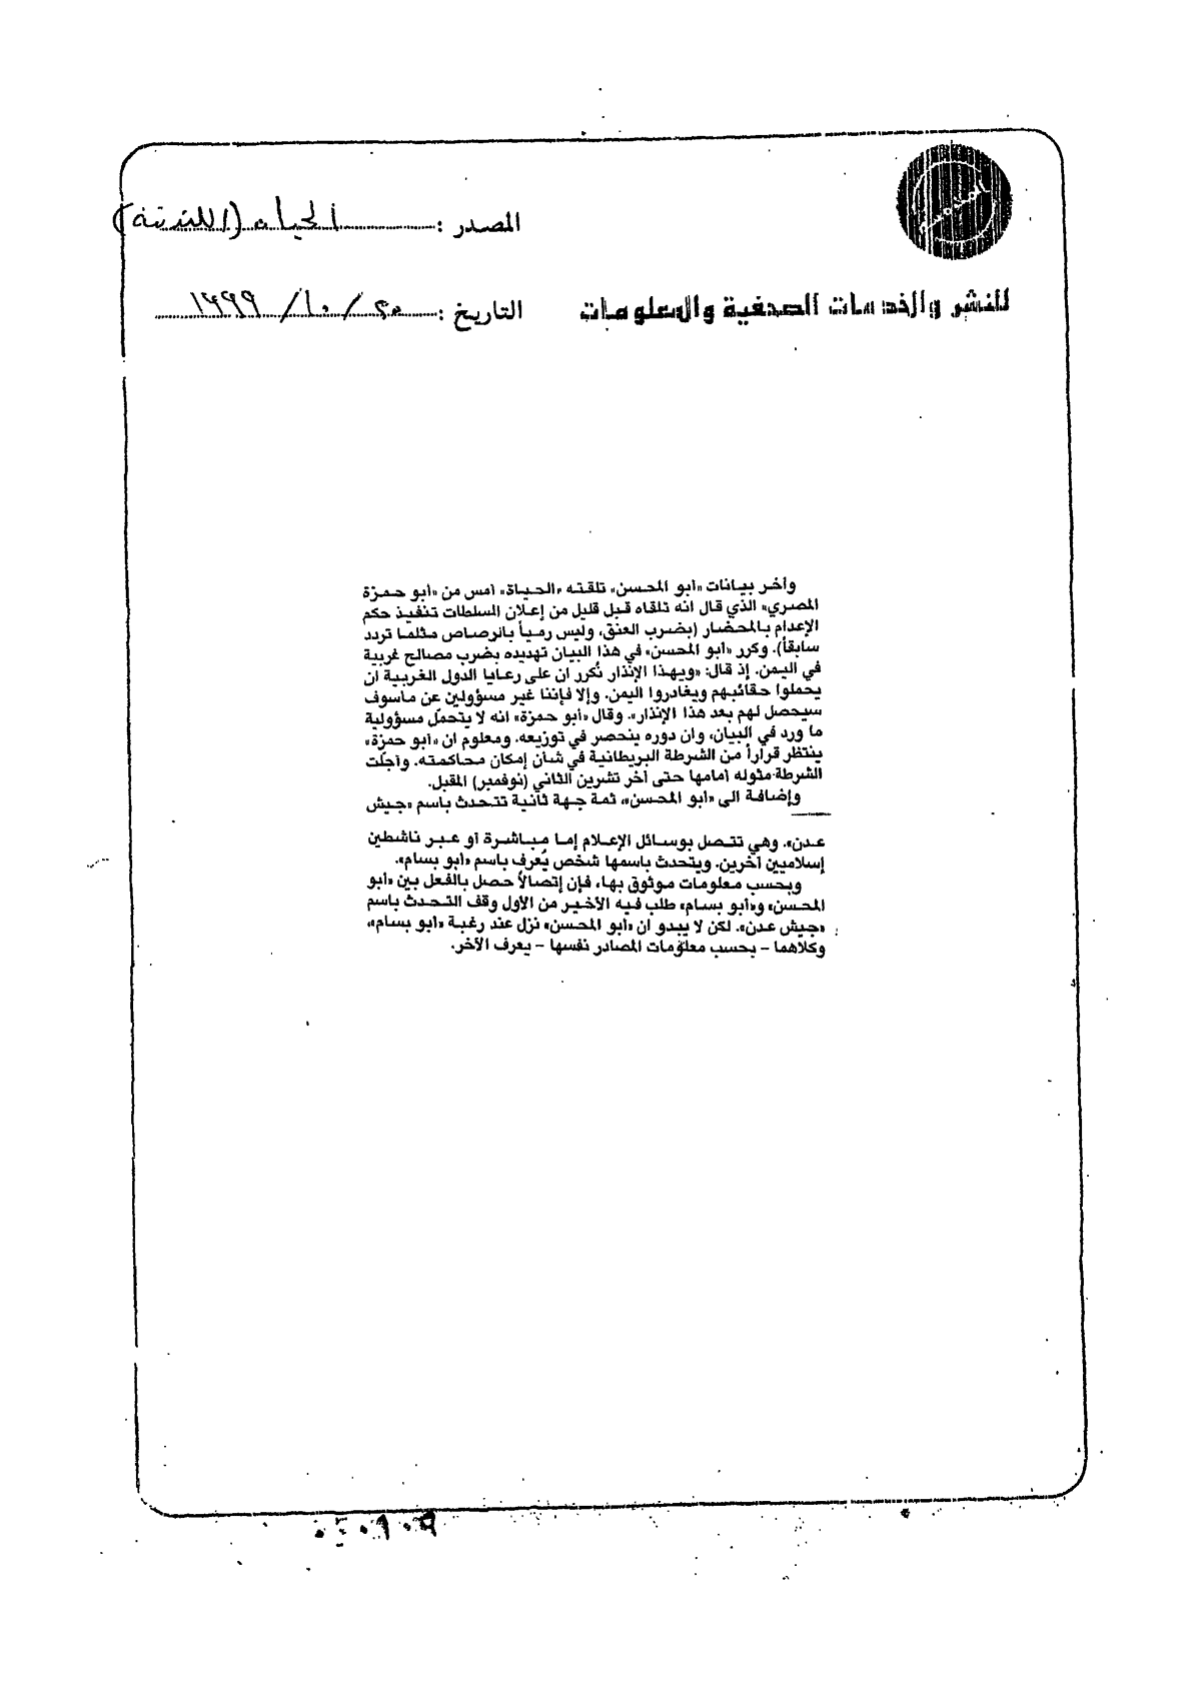 المصدر : الحياة (اللندنية)
للنشر والخدمات الصحفية والمعلومات
التاريخ : ٢٠ / ١٠ / ١٩٩٩
وآخر بيانات «أبو المحسن» تلقته «الحياة» أمس من «أبو حمزة
المصري» الذي قال انه تلقاه قبل قليل من إعلان السلطات تنفيذ حكم
الإعدام بالمحضار (بضرب العنق، وليس رمياً بالرصاص مثلما تردد
سابقاً). وكرر «أبو المحسن» في هذا البيان تهديده بضرب مصالح غربية
في اليمن. إذ قال: «وبهذا الإنذار نُكرر ان على رعايا الدول الغربية ان
يحملوا حقائبهم ويغادروا اليمن. وإلا فإننا غير مسؤولين عن ماسوف
سيحصل لهم بعد هذا الإنذار». وقال «أبو حمزة» انه لا يتحمّل مسؤولية
ما ورد في البيان، وان دوره ينحصر في توزيعه. ومعلوم ان «أبو حمزة»
ينتظر قراراً من الشرطة البريطانية في شأن إمكان محاكمته. وأجلت
الشرطة مثوله أمامها حتى آخر تشرين الثاني (نوفمبر) المقبل.
وإضافة الى «أبو المحسن»، ثمة جهة ثانية تتحدث باسم «جيش
عدن». وهي تتصل بوسائل الإعلام إما مباشرة أو عبر ناشطين
إسلاميين آخرين. ويتحدث باسمها شخص يُعرف باسم «أبو بسام».
وبحسب معلومات موثوق بها، فإن إتصالاً حصل بالفعل بين «أبو
المحسن» و«أبو بسام» طلب فيه الأخير من الأول وقف التحدث باسم
«جيش عدن». لكن لا يبدو ان «أبو المحسن» نزل عند رغبة «أبو بسام»،
وكلاهما – بحسب معلومات المصادر نفسها – يعرف الآخر.